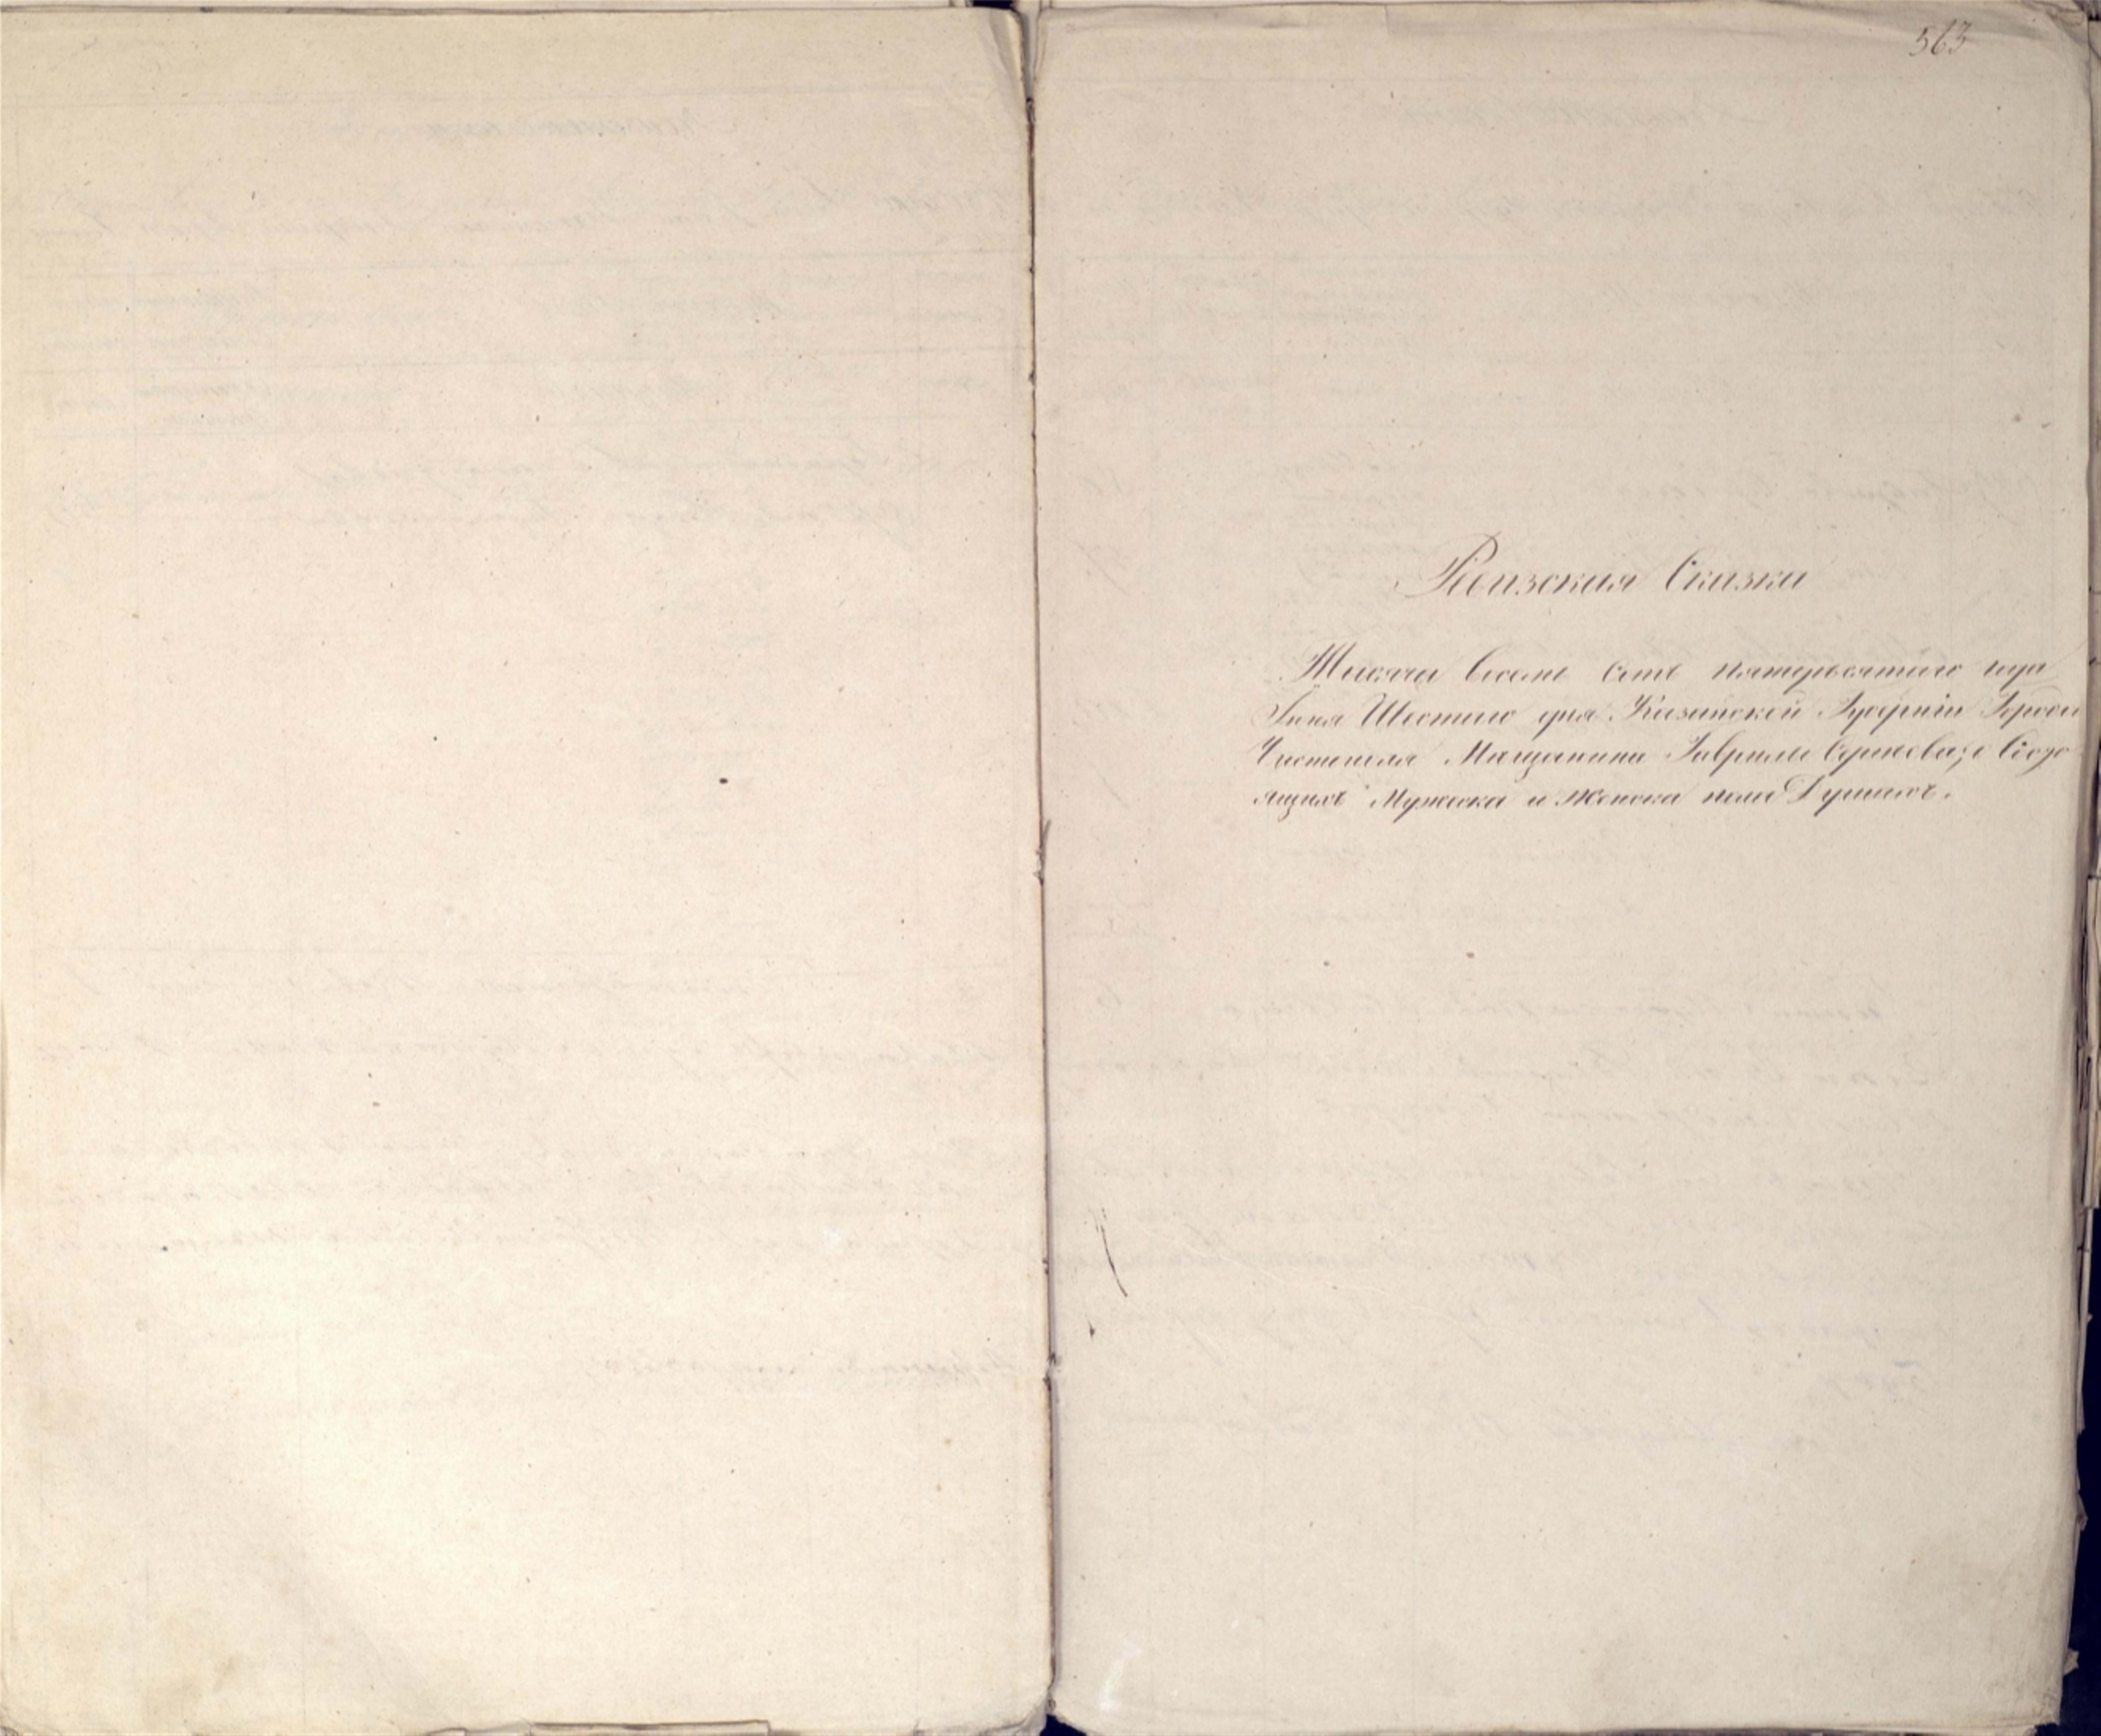 563
Ревизская Сказка
Тысяча восемь сотъ пятидесятаго года
Iюня Шестаго дня Казанской Губернiи Города
Чистополя Мещанина Гаврилы Сергеева, о Состо
ящихъ Мужеска и Женска пола Душахъ.